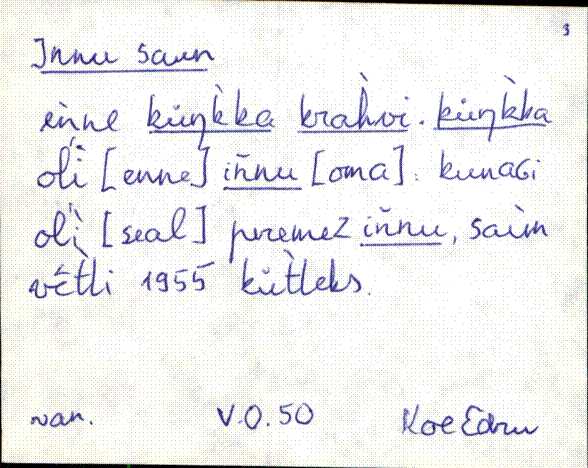 3
Innu saun
èǹne küŋk̀ka kràh̀vi. küŋk̀ka
olì [enne] iñnu [oma]. kunaGi
olì [seal] peremez iñnu, saùn
vèt̀li 1955 küt̀teks.
van. V.O.50 Koe Edru